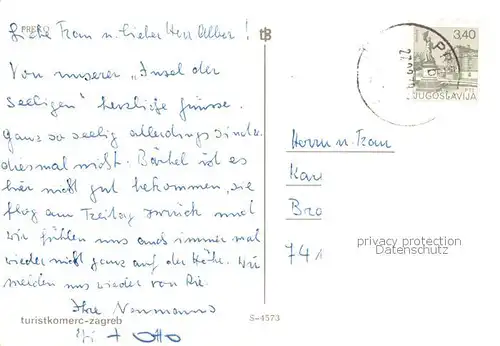 PREKO
Liebe Frau u. lieber Herr Alber!
Von unserer "Insel der
Seeligen" herzliche Grüsse.
Ganz so seelig allerdings sind's
diesmal nicht. Bärbel ist es
hier nicht gut bekommen, sie
flog am Freitag zurück und
wir fühlen uns auch immer mal
wieder nicht ganz auf der Höhe. Wir
melden uns wieder von
Ihre Neumanns
+ Otto
turistkomerc-zagreb
S-4573
tB
3,40
JUGOSLAVIJA
Herrn u. Frau
Kar
Bro
741
privacy protection
Datenschutz